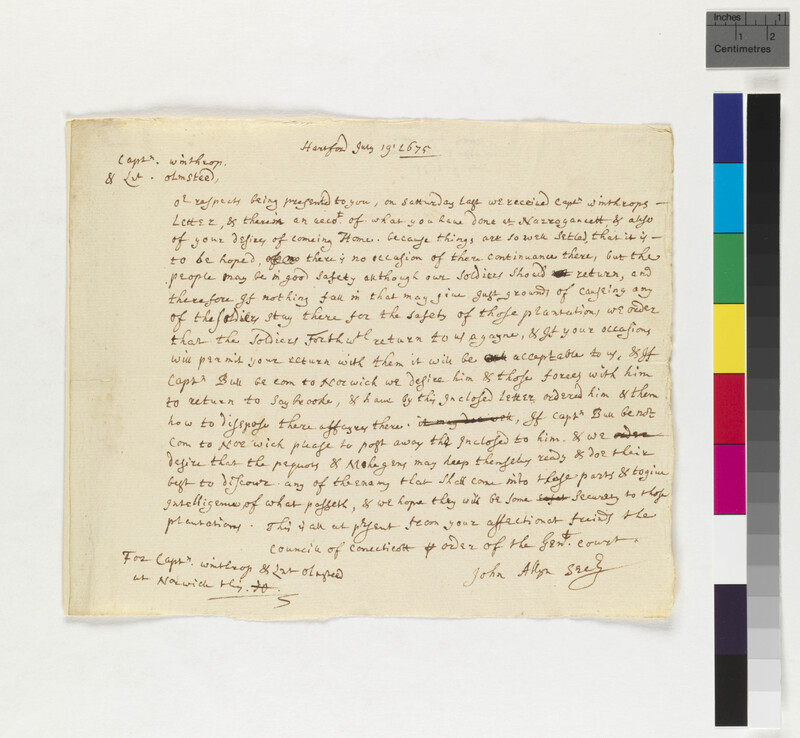 Inches 1
1 2
Centimetres
Hartford July 19: 1675
Captn. winthrop.
& Lnt. olmsteed,
or respects being presented to you, on satturday last we received Captn winthrops
Letter, & therein an accot. of what you have done at Narrogancett, & also
of your desires of comeing Home. because things are so well setled, that it is
to be hoped, there is no occasion of there continuance there, but the
people may be in good safety although our soldiers should return, and
therefore If nothing fall in that may give Just grounds of causeing any
of the soldiers stay there for the safety of those plantations we order
that the soldiers Forthwth return to us agayne, & If your occasions
will permit your return with them it will be acceptable to us, & If
Captn Bull be com to Norwich we desire him & those forces with him
to return to Saybrooke, & have by this Inclosed Letter ordered him & them
how to dispose there affayres there. it may doe well, If Captn Bull be not
com to Norwich please to post away this Inclosed to him. & we order
desire that the pequots & Mohegens may keep themselves ready & doe their
best to discover any of the enemy that shall come into those parts & to give
Intelligence of what passeth, & we hope they will be some safet security to those
plantations. This is all at prsent from your affectionat freinds the
Councill of Conecticott order of the Genll. court.
For Captn. winthrop & Lnt olmsted
at Norwich this.
John Allyn Secry